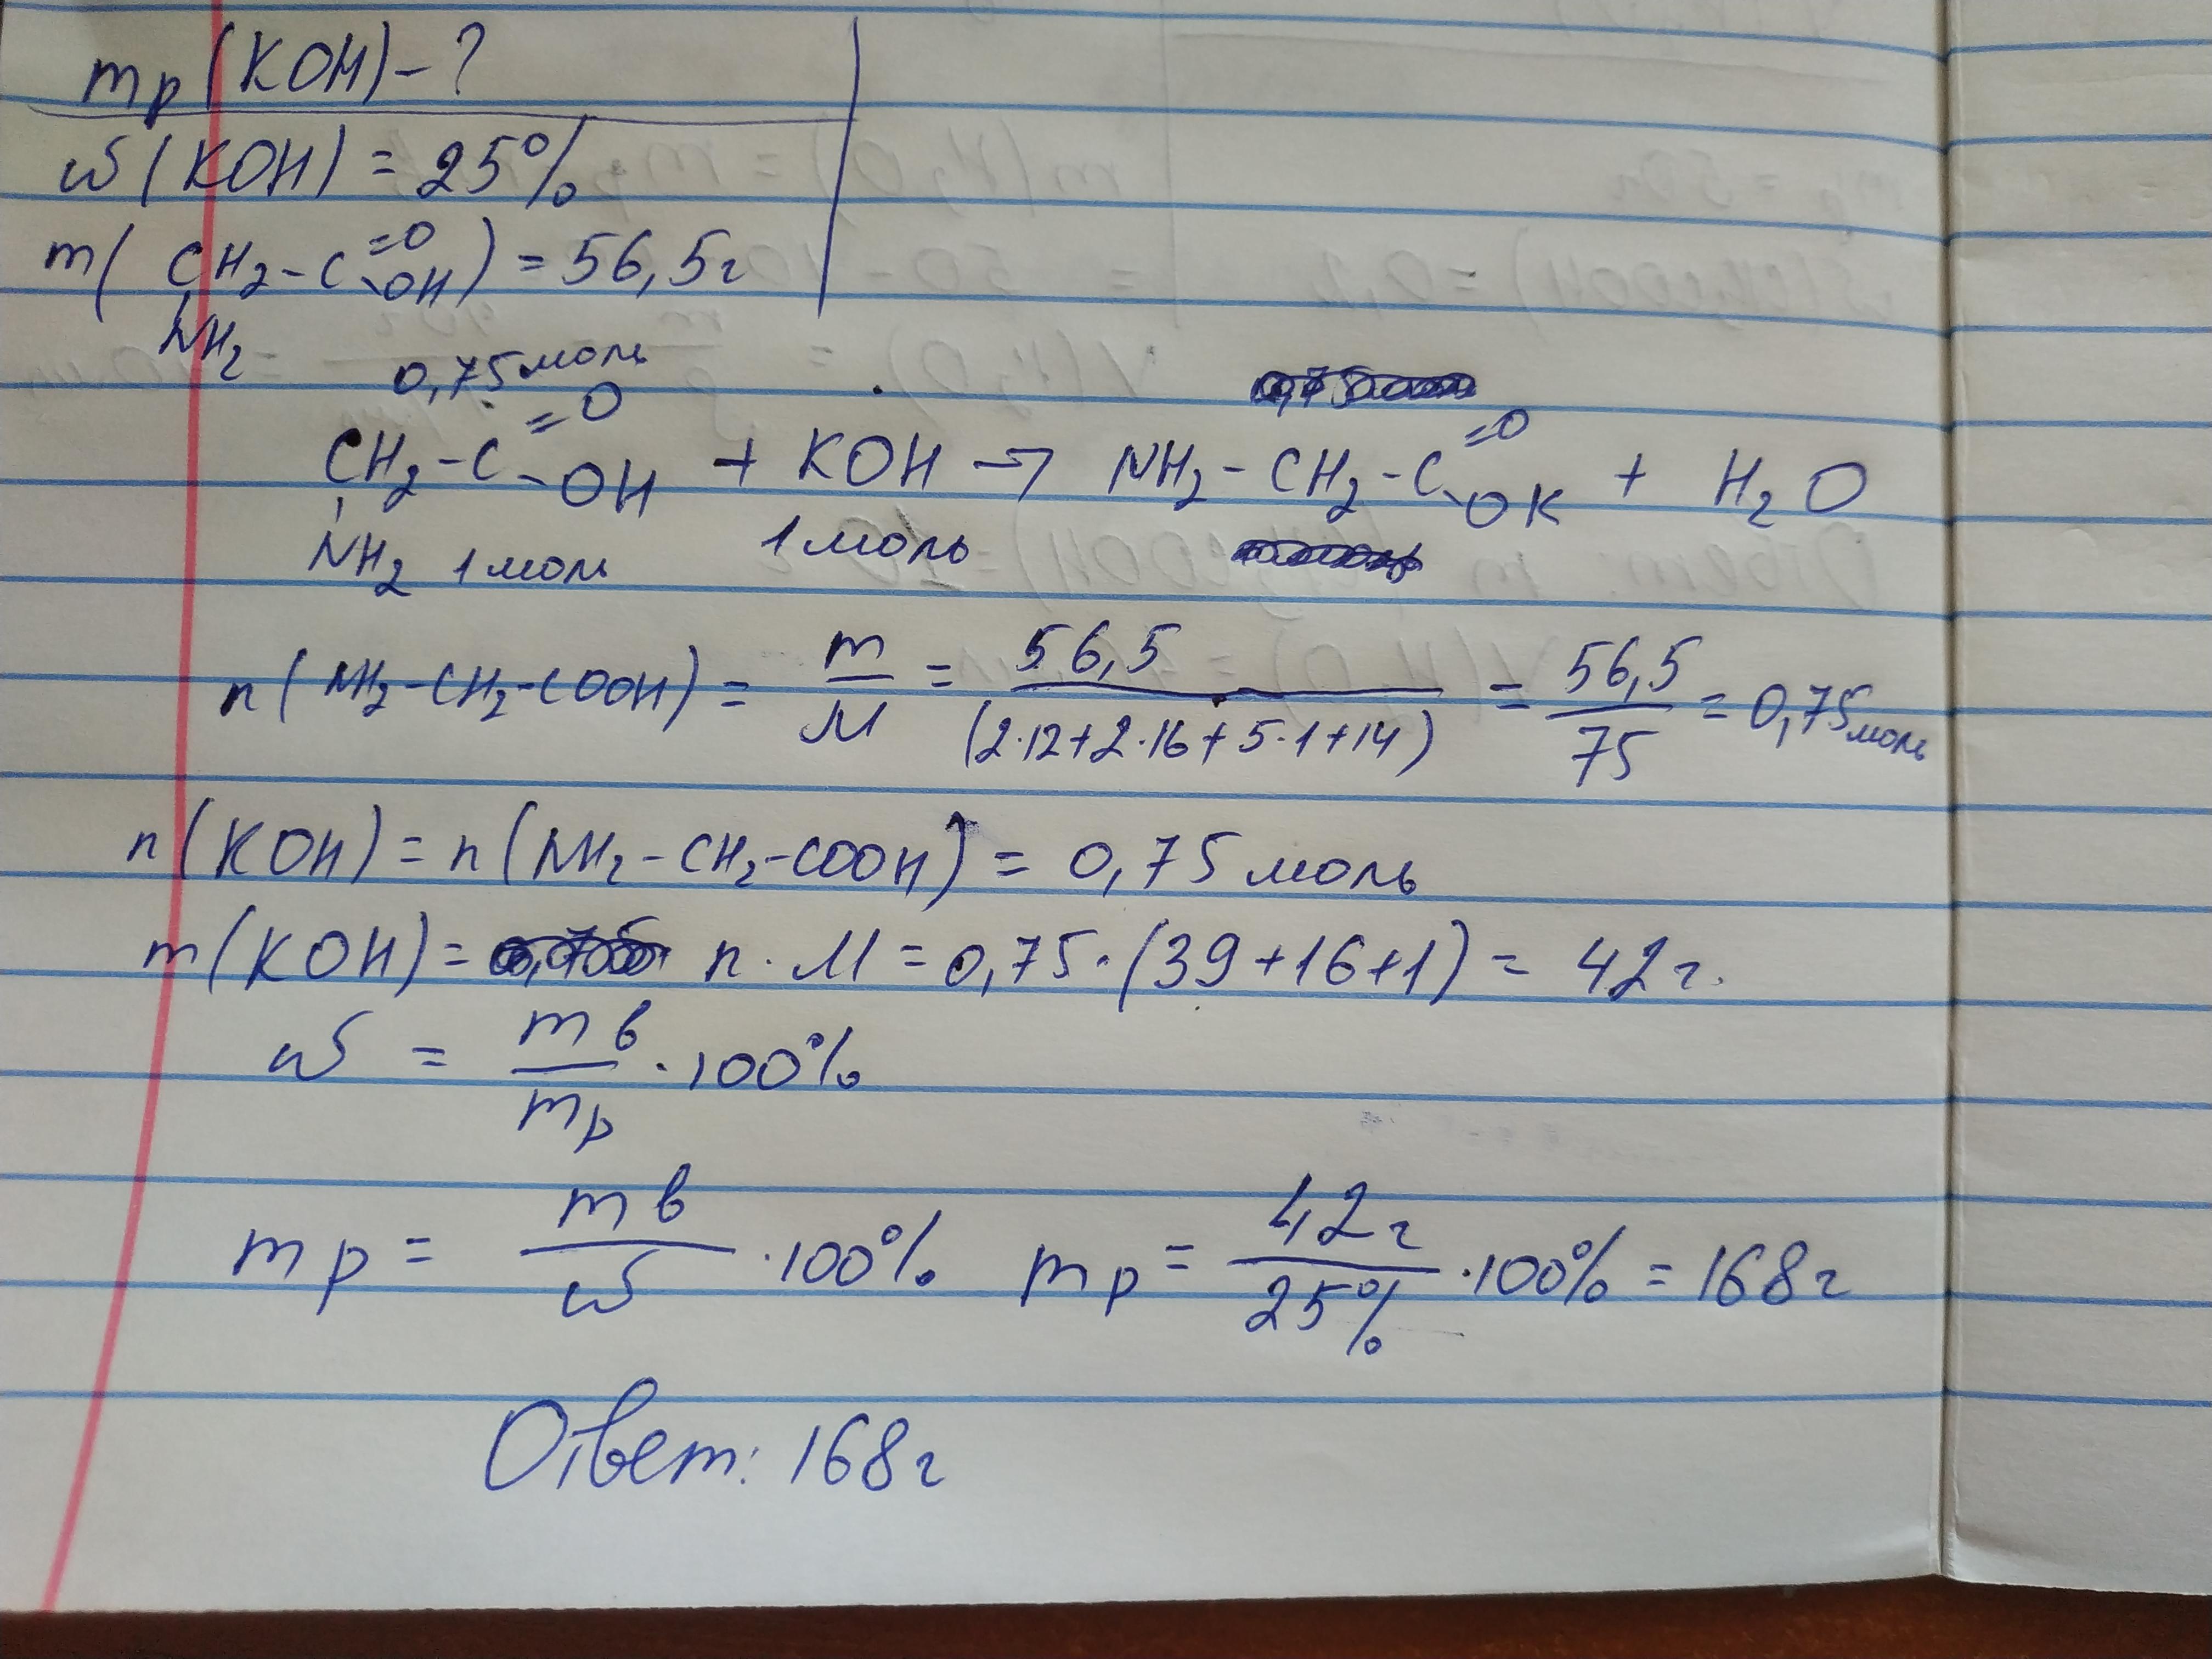 mр(KOH) - ?
ω(KOH) = 25%
m(CH₂-C=O-OH) = 56,5г
NH₂
0,75 моль
CH₂-C=O-OH + KOH → NH₂-CH₂-C=O-OK + H₂O
NH₂ 1 моль 1 моль
n(NH₂-CH₂-COOH) = m/M = 56,5/(2·12+2·16+5·1+14) = 56,5/75 = 0,75 моль
n(KOH) = n(NH₂-CH₂-COOH) = 0,75 моль
m(KOH) = n·M = 0,75·(39+16+1) = 42 г.
ω = mв/mр · 100%
mр = mв/ω · 100% mр = 42г/25% · 100% = 168г
Ответ: 168г